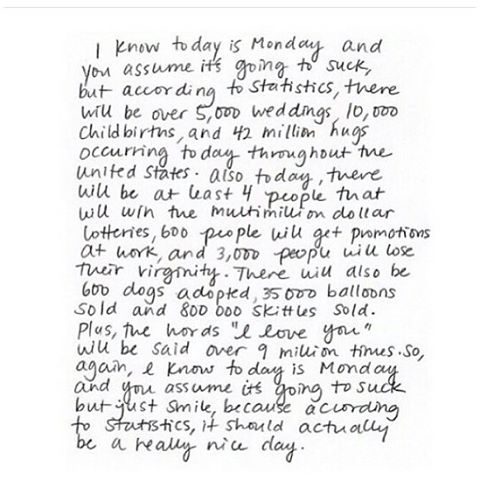 I know today is Monday and
you assume it's going to suck,
but according to statistics, there
will be over 5,000 weddings, 10,000
childbirths, and 42 million hugs
occurring today throughout the
united states. also today, there
will be at least 4 people that
will win the multimillion dollar
lotteries, 600 people will get promotions
at work, and 3,000 people will lose
their virginity. There will also be
600 dogs adopted, 35 000 balloons
sold and 800 000 skittles sold.
Plus, the words "I love you"
will be said over 9 million times. So,
again, I know today is Monday
and you assume its going to suck
but just smile, because according
to statistics, it should actually
be a really nice day.